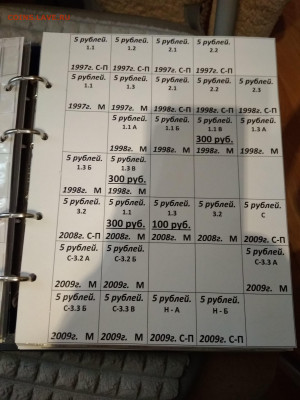 5 рублей. 5 рублей. 5 рублей. 5 рублей.
1.1 1.2 2.1 2.2
1997г. С-П 1997г. С-П 1997г. С-П 1997г. С-П
5 рублей. 5 рублей. 5 рублей. 5 рублей. 5 рублей.
1.1 1.3 2.1 2.2 2.3
1997г. М 1997г. М 1998г. С-П 1998г. С-П 1998г. С-П
5 рублей. 5 рублей. 5 рублей. 5 рублей.
1.1 А 1.1 Б 1.1 В 1.3 А
300 руб.
1998г. М 1998г. М 1998г. М 1998г. М
5 рублей. 5 рублей.
1.3 Б 1.3 В
300 руб.
1998г. М 1998г. М
5 рублей. 5 рублей. 5 рублей. 5 рублей.
3.2 1.1 1.3 С
300 руб. 100 руб.
2008г. С-П 2008г. М 2008г. М 2009г. С-П
5 рублей. 5 рублей. 5 рублей.
С-3.2 А С-3.2 Б С-3.3 А
2009г. М 2009г. М 2009г. М
5 рублей. 5 рублей. 5 рублей. 5 рублей.
С-3.3 Б С-3.3 В Н - А Н - Б
2009г. М 2009г. М 2009г. С-П 2009г. С-П